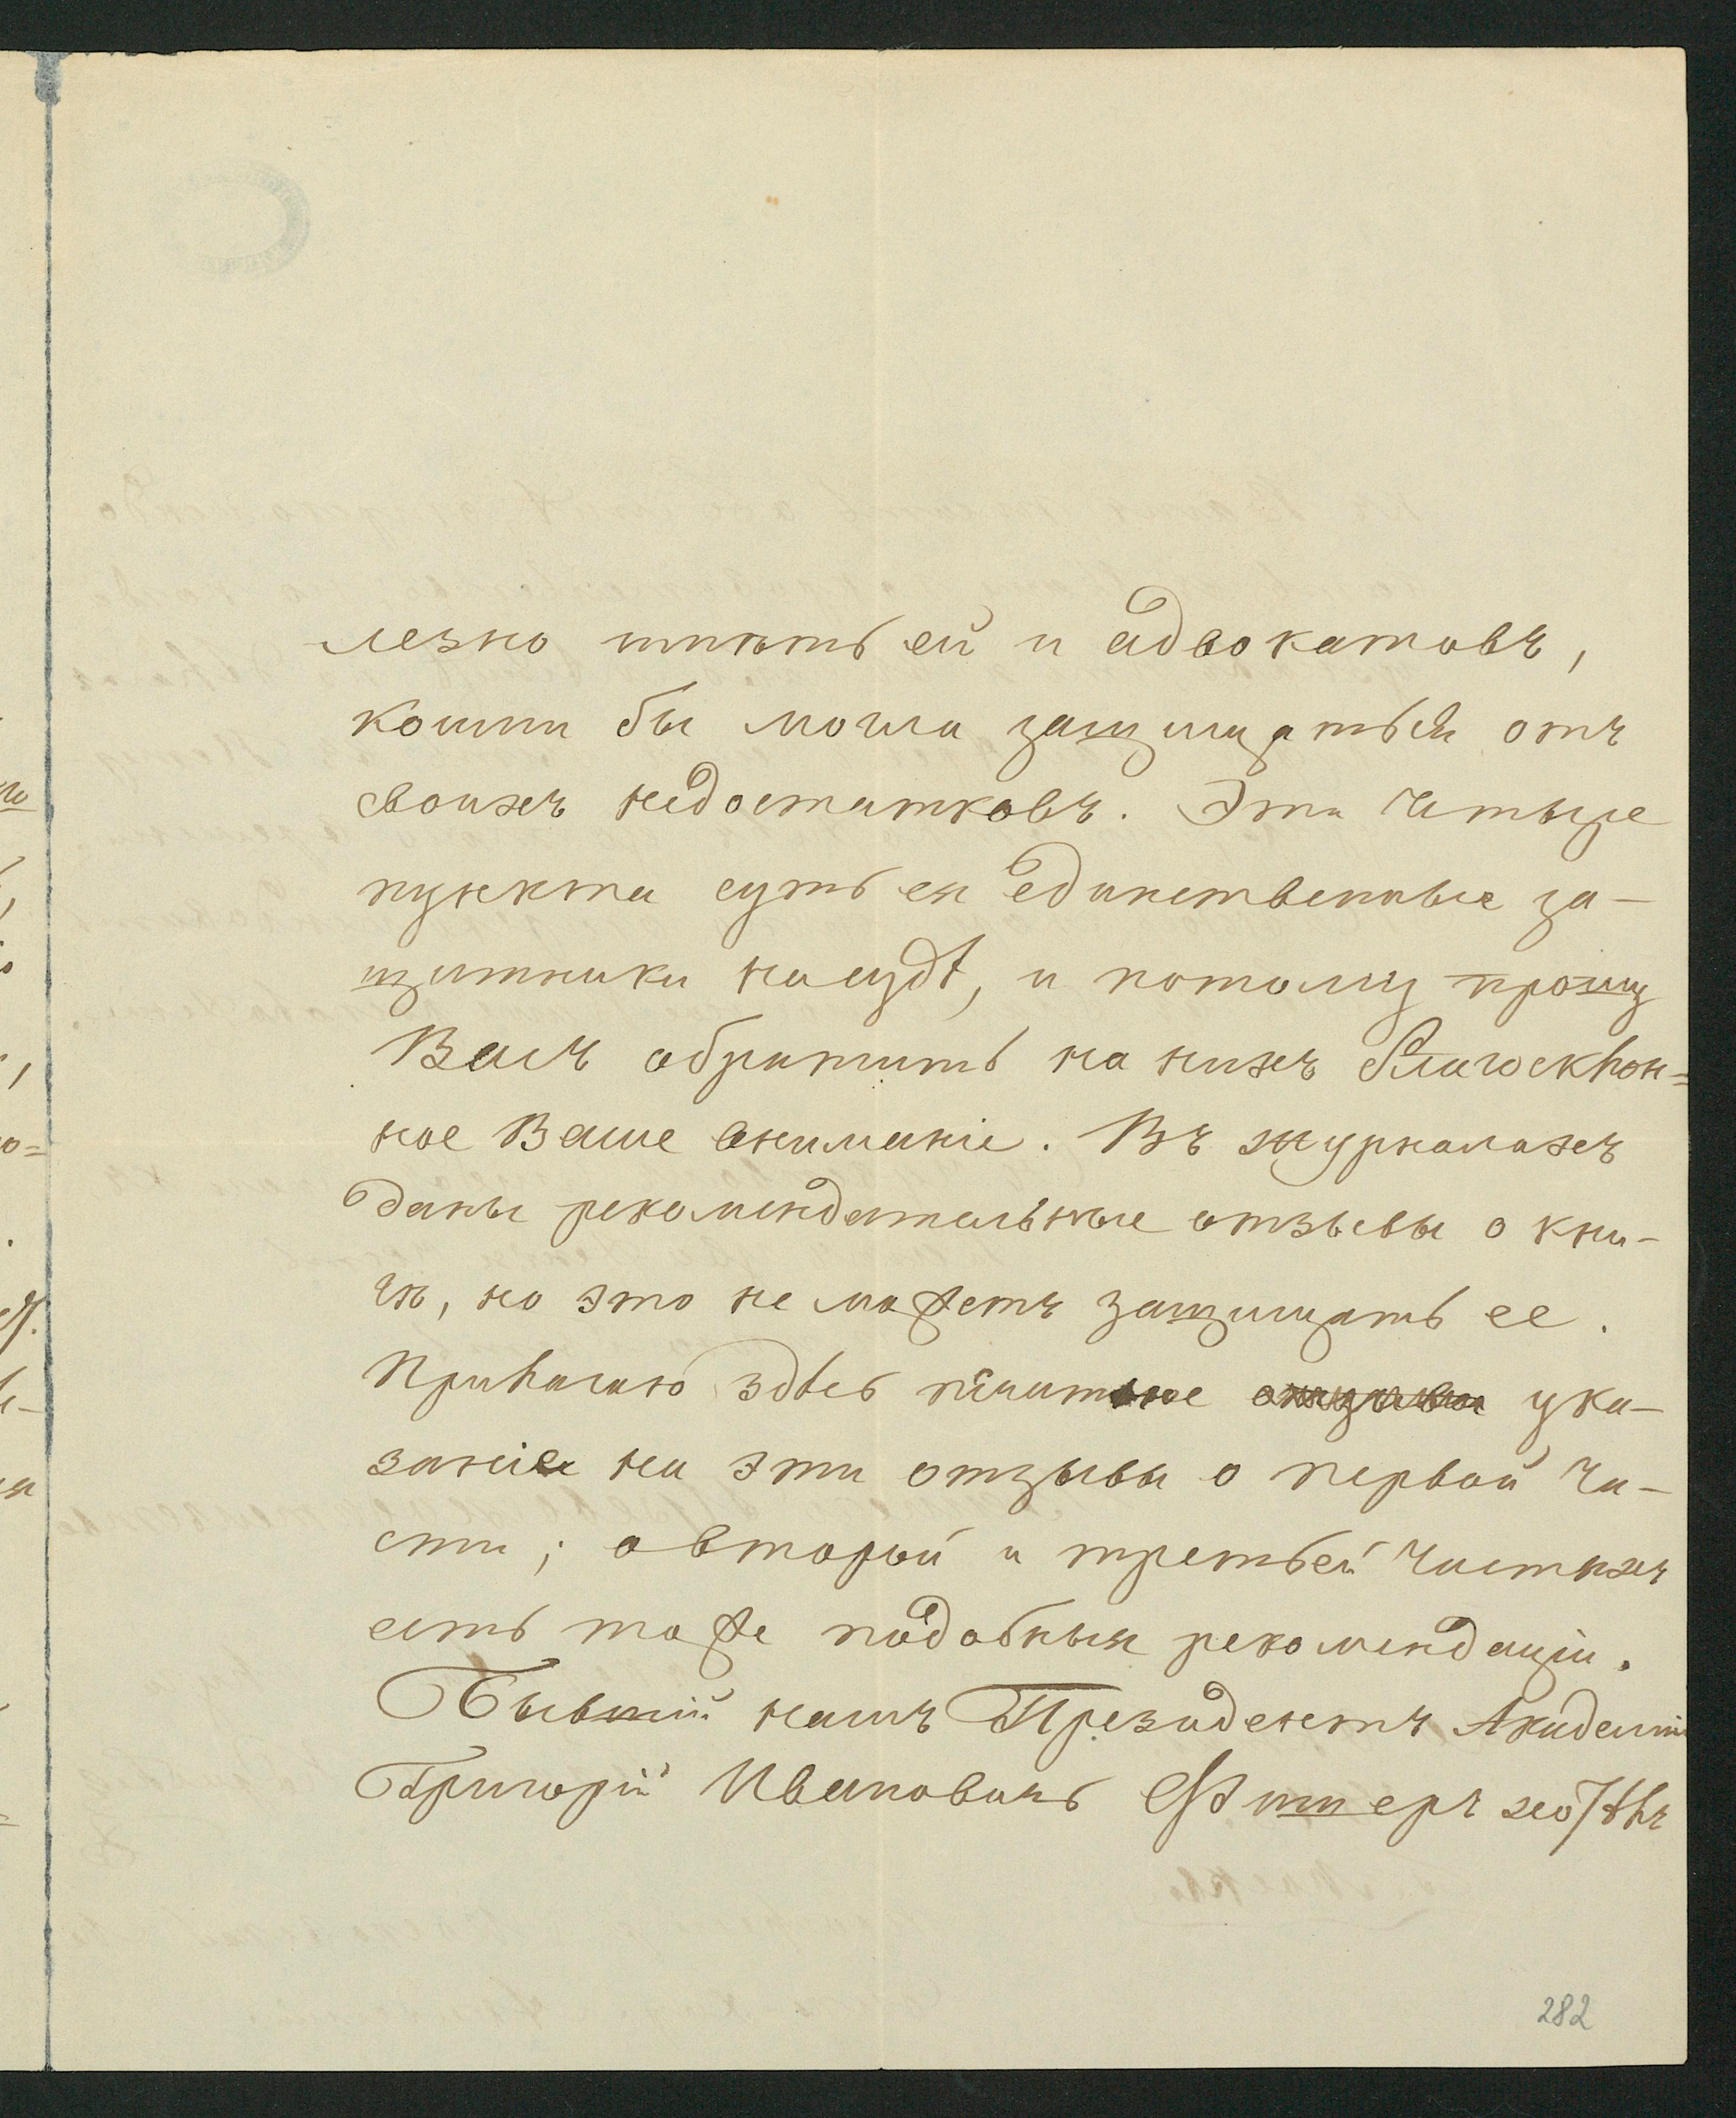 лезно имѣть ей и адвокатовъ,
коими бы могла защищаться отъ
своихъ недостатковъ. Эти четыре
пункта суть ея единственные за-
щитники на судѣ, и потому прошу
Васъ обратить на нихъ благосклон=
ное Ваше вниманіе. Въ журналахъ
даны рекомендательные отзывы о кни-
гѣ, но это не можетъ защищать ее.
Прилагаю здѣсь печатное отзывы ука-
заніе на эти отзывы о первой ча-
сти; о второй и третьей частяхъ
есть тоже подобныя рекомендаціи.
Бывшій нашъ Президентъ Академіи
Григорій Ивановичь Фишеръ хотѣлъ
282